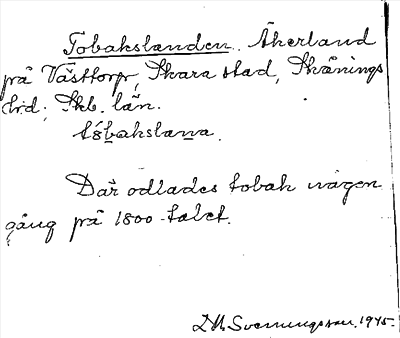 Tobakslanden. Åkerland
på Västtorp, Skara stad, Skånings
hrd; Skb. län.
tóbakslana.
Där odlades tobak någon
gång på 1800-talet.
D.H. Svenningsson, 1945.